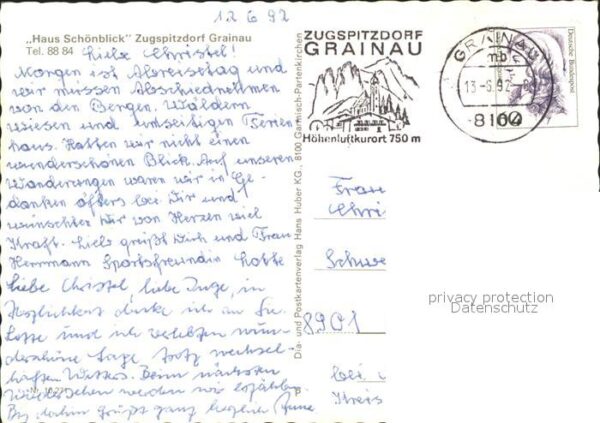 12 6 92
„Haus Schönblick" Zugspitzdorf Grainau
Tel. 88 84
Liebe Christel!
Morgen ist Abreisetag und
wir müssen Abschiednehmen
von den Bergen, Wäldern
wiesen und
Ferien
haus. Hatten wir nicht einen
wunderschönen Blick. Auf unseren
Wanderungen waren wir in Ge-
danken öfters bei Dir und
wünschten Dir von Herzen viel
Kraft. Lieb grüßt Dich und Frau
Herrmann Sportsfreundin Lotte
liebe Christel liebe Inge, in
Herzlichkeit denke ich an Sie.
Lotte und ich verlebten wun-
derschöne Tage trotz wechsel-
haften Wetters. Beim nächsten
Wiedersehen werden wir erzählen.
Bis dahin grüßt ganz herzlich
Dia- und Postkartenverlag Hans Huber KG., 8100 Garmisch-Partenkirchen
ZUGSPITZDORF
GRAINAU
Höhenluftkurort 750 m
GRAINAU
mb
13.-6.92
8104
Deutsche Bundespost
Frau
Chri
Schwe
8901
bei
Kreis
privacy protection
Datenschutz